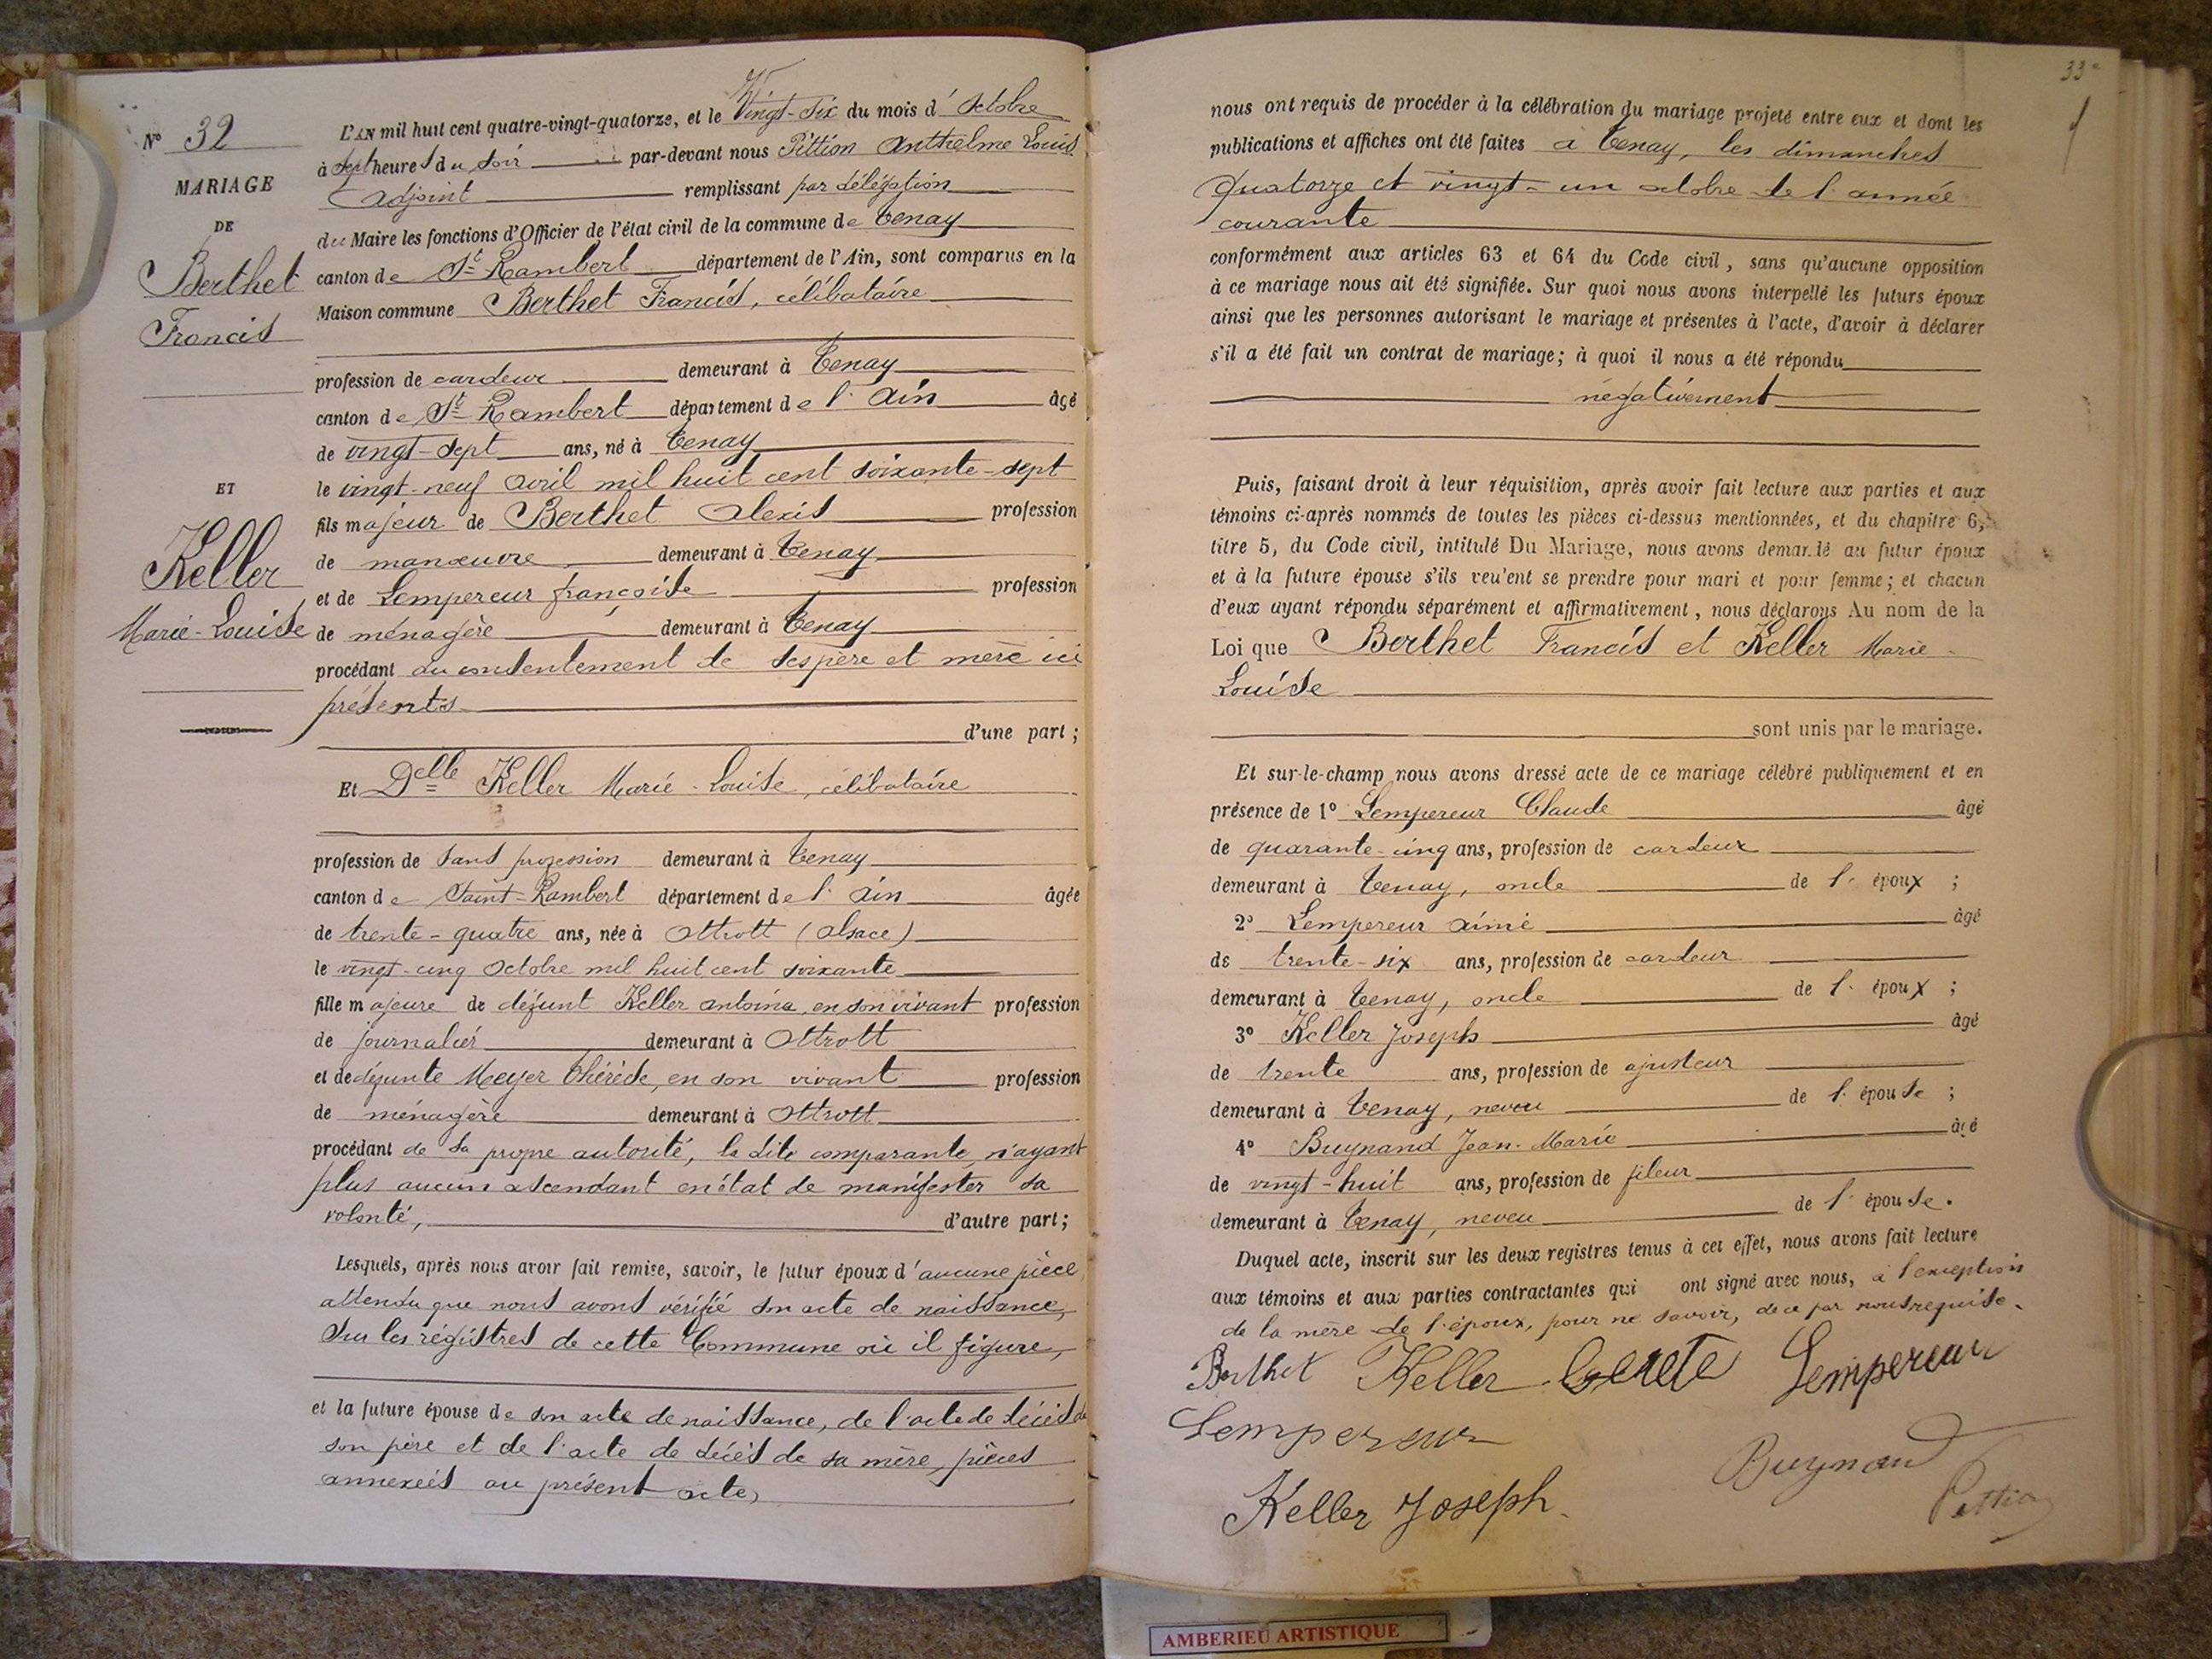 N° 32
MARIAGE
DE
Berthet
Francis
ET
Keller
Marie-Louise
L'AN mil huit cent quatre-vingt-quatorze, et le Vingt-six du mois d'Octobre
à sept heures du soir par-devant nous Pittion Anthelme Louis
Adjoint remplissant par délégation
du Maire les fonctions d'Officier de l'état civil de la commune de Tenay
canton de St Rambert département de l'Ain, sont comparus en la
Maison commune Berthet Francis, célibataire
profession de cardeur demeurant à Tenay
canton de St Rambert département de l'Ain âgé
de vingt-sept ans, né à Tenay
le vingt-neuf avril mil huit cent soixante-sept
fils majeur de Berthet Alexis profession
de manœuvre demeurant à Tenay
et de Lempereur françoise profession
de ménagère demeurant à Tenay
procédant du consentement de ses père et mère ici
présents
d'une part ;
Et Delle Keller Marie-Louise, célibataire
profession de sans profession demeurant à Tenay
canton de Saint-Rambert département de l'Ain âgée
de trente-quatre ans, née à Ottrott (Alsace)
le vingt-cinq Octobre mil huit cent soixante
fille majeure de défunt Keller Antoine, en son vivant profession
de journalier demeurant à Ottrott
et de défunte Meyer Thérèse, en son vivant profession
de ménagère demeurant à Ottrott
procédant de sa propre autorité, la dite comparante n'ayant
plus aucun ascendant en état de manifester sa
volonté, d'autre part ;
Lesquels, après nous avoir fait remise, savoir, le futur époux d'aucune pièce
attendu que nous avons vérifié son acte de naissance,
sur les régistres de cette Commune où il figure,
et la future épouse de son acte de naissance, de l'acte de décès de
son père et de l'acte de décès de sa mère, pièces
annexées au présent acte,
33
nous ont requis de procéder à la célébration du mariage projeté entre eux et dont les
publications et affiches ont été faites à Tenay, les dimanches
quatorze et vingt-un octobre de l'année
courante
conformément aux articles 63 et 64 du Code civil, sans qu'aucune opposition
à ce mariage nous ait été signifiée. Sur quoi nous avons interpellé les futurs époux
ainsi que les personnes autorisant le mariage et présentes à l'acte, d'avoir à déclarer
s'il a été fait un contrat de mariage ; à quoi il nous a été répondu
négativement
Puis, faisant droit à leur réquisition, après avoir fait lecture aux parties et aux
témoins ci-après nommés de toutes les pièces ci-dessus mentionnées, et du chapitre 6,
titre 5, du Code civil, intitulé Du Mariage, nous avons demandé au futur époux
et à la future épouse s'ils veulent se prendre pour mari et pour femme ; et chacun
d'eux ayant répondu séparément et affirmativement, nous déclarons Au nom de la
Loi que Berthet Francis et Keller Marie-
Louise
sont unis par le mariage.
Et sur-le-champ nous avons dressé acte de ce mariage célébré publiquement et en
présence de 1° Lempereur Claude âgé
de quarante-cinq ans, profession de cardeur
demeurant à Tenay, oncle de l'époux ;
2° Lempereur Aimé âgé
de trente-six ans, profession de cardeur
demeurant à Tenay, oncle de l'époux ;
3° Keller Joseph âgé
de trente ans, profession de ajusteur
demeurant à Tenay, neveu de l'épouse ;
4° Buynand Jean-Marie âgé
de vingt-huit ans, profession de fileur
demeurant à Tenay, neveu de l'épouse.
Duquel acte, inscrit sur les deux registres tenus à cet effet, nous avons fait lecture
aux témoins et aux parties contractantes qui ont signé avec nous, à l'exception
de la mère de l'époux, pour ne savoir, de ce par nous requise.
Berthet Keller Lempereur
Lempereur
Buynand
Keller Joseph
Pittion
AMBERIEU ARTISTIQUE